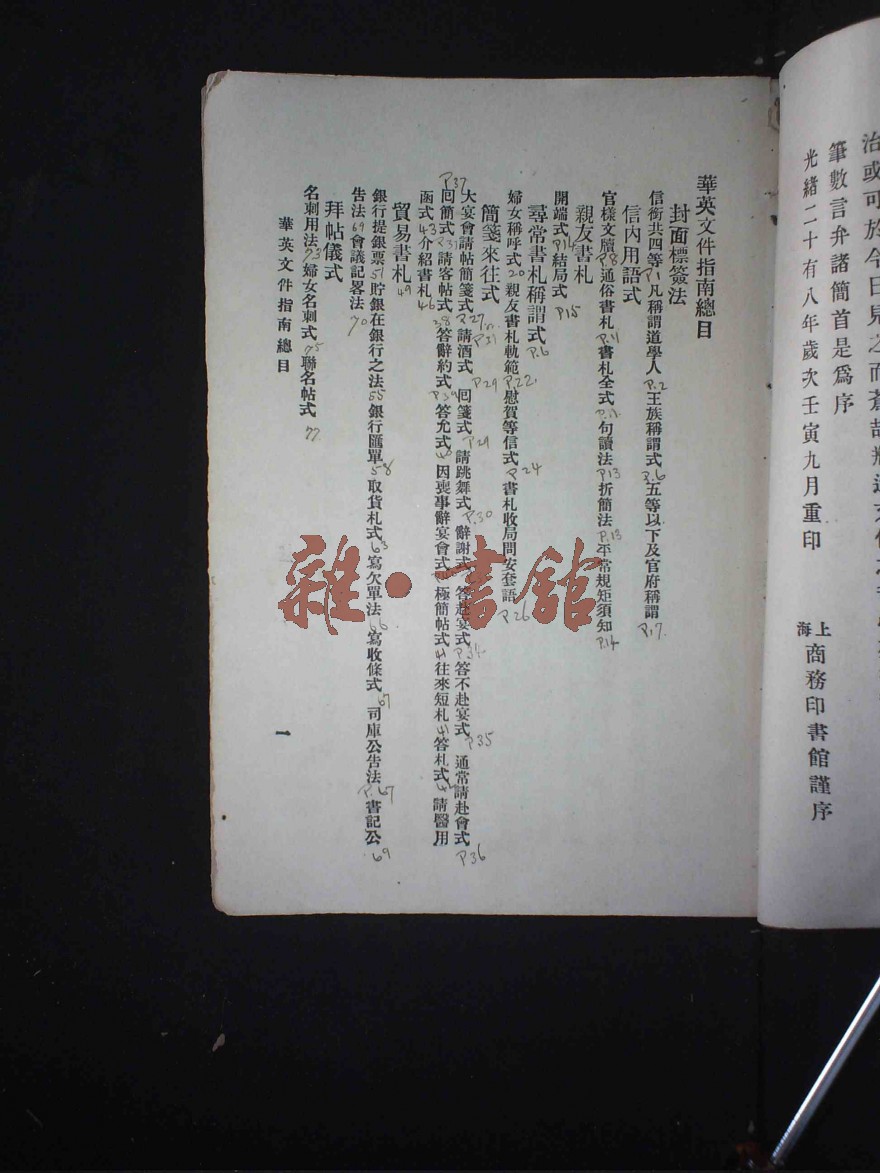 治或可於今日見之而蒼
筆數言弁諸簡首是爲序
光緒二十有八年歲次壬寅九月重印
上海商務印書館謹序
華英文件指南總目
封面標簽法
信銜共四等P.1凡稱謂道學人P.2王族稱謂式P.6五等以下及官府稱謂P.17.
信內用語式
官樣文牘P.8通俗書札P.11書札全式P.12句讀法P13折簡法P.13平常規矩須知P.14
親友書札
開端式P14結局式P15
尋常書札稱謂式P.6
婦女稱呼式20親友書札軌範P.22.慰賀等信式P24書札收局問安套語P26
簡箋來往式
大宴會請帖簡箋式P27請酒式P29回箋式P29請跳舞式P.30辭謝式答赴宴式P34答不赴宴式P35通常請赴會式P36
回簡式P37請客帖式38答辭約式P39答允式40因喪事辭宴會式極簡帖式41往來短札41答札式42請醫用
函式43介紹書札46
貿易書札49
銀行提銀票51貯銀在銀行之法55銀行匯單58取貨札式63寫欠單法66寫收條式67司庫公告法P.67書記公
告法69會議記畧法70
拜帖儀式
名刺用法73婦女名刺式75聯名帖式77
華英文件指南總目
一
雜·書館